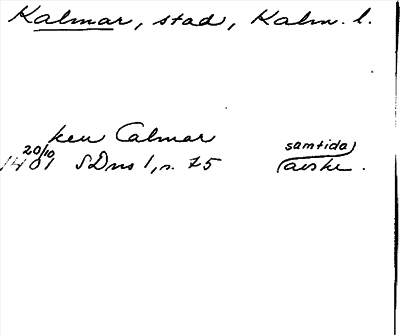 Kalmar, stad, Kalm. l.
ken Calmar
20/10 samtida
1401 SDns 1, s. 75 avskr.